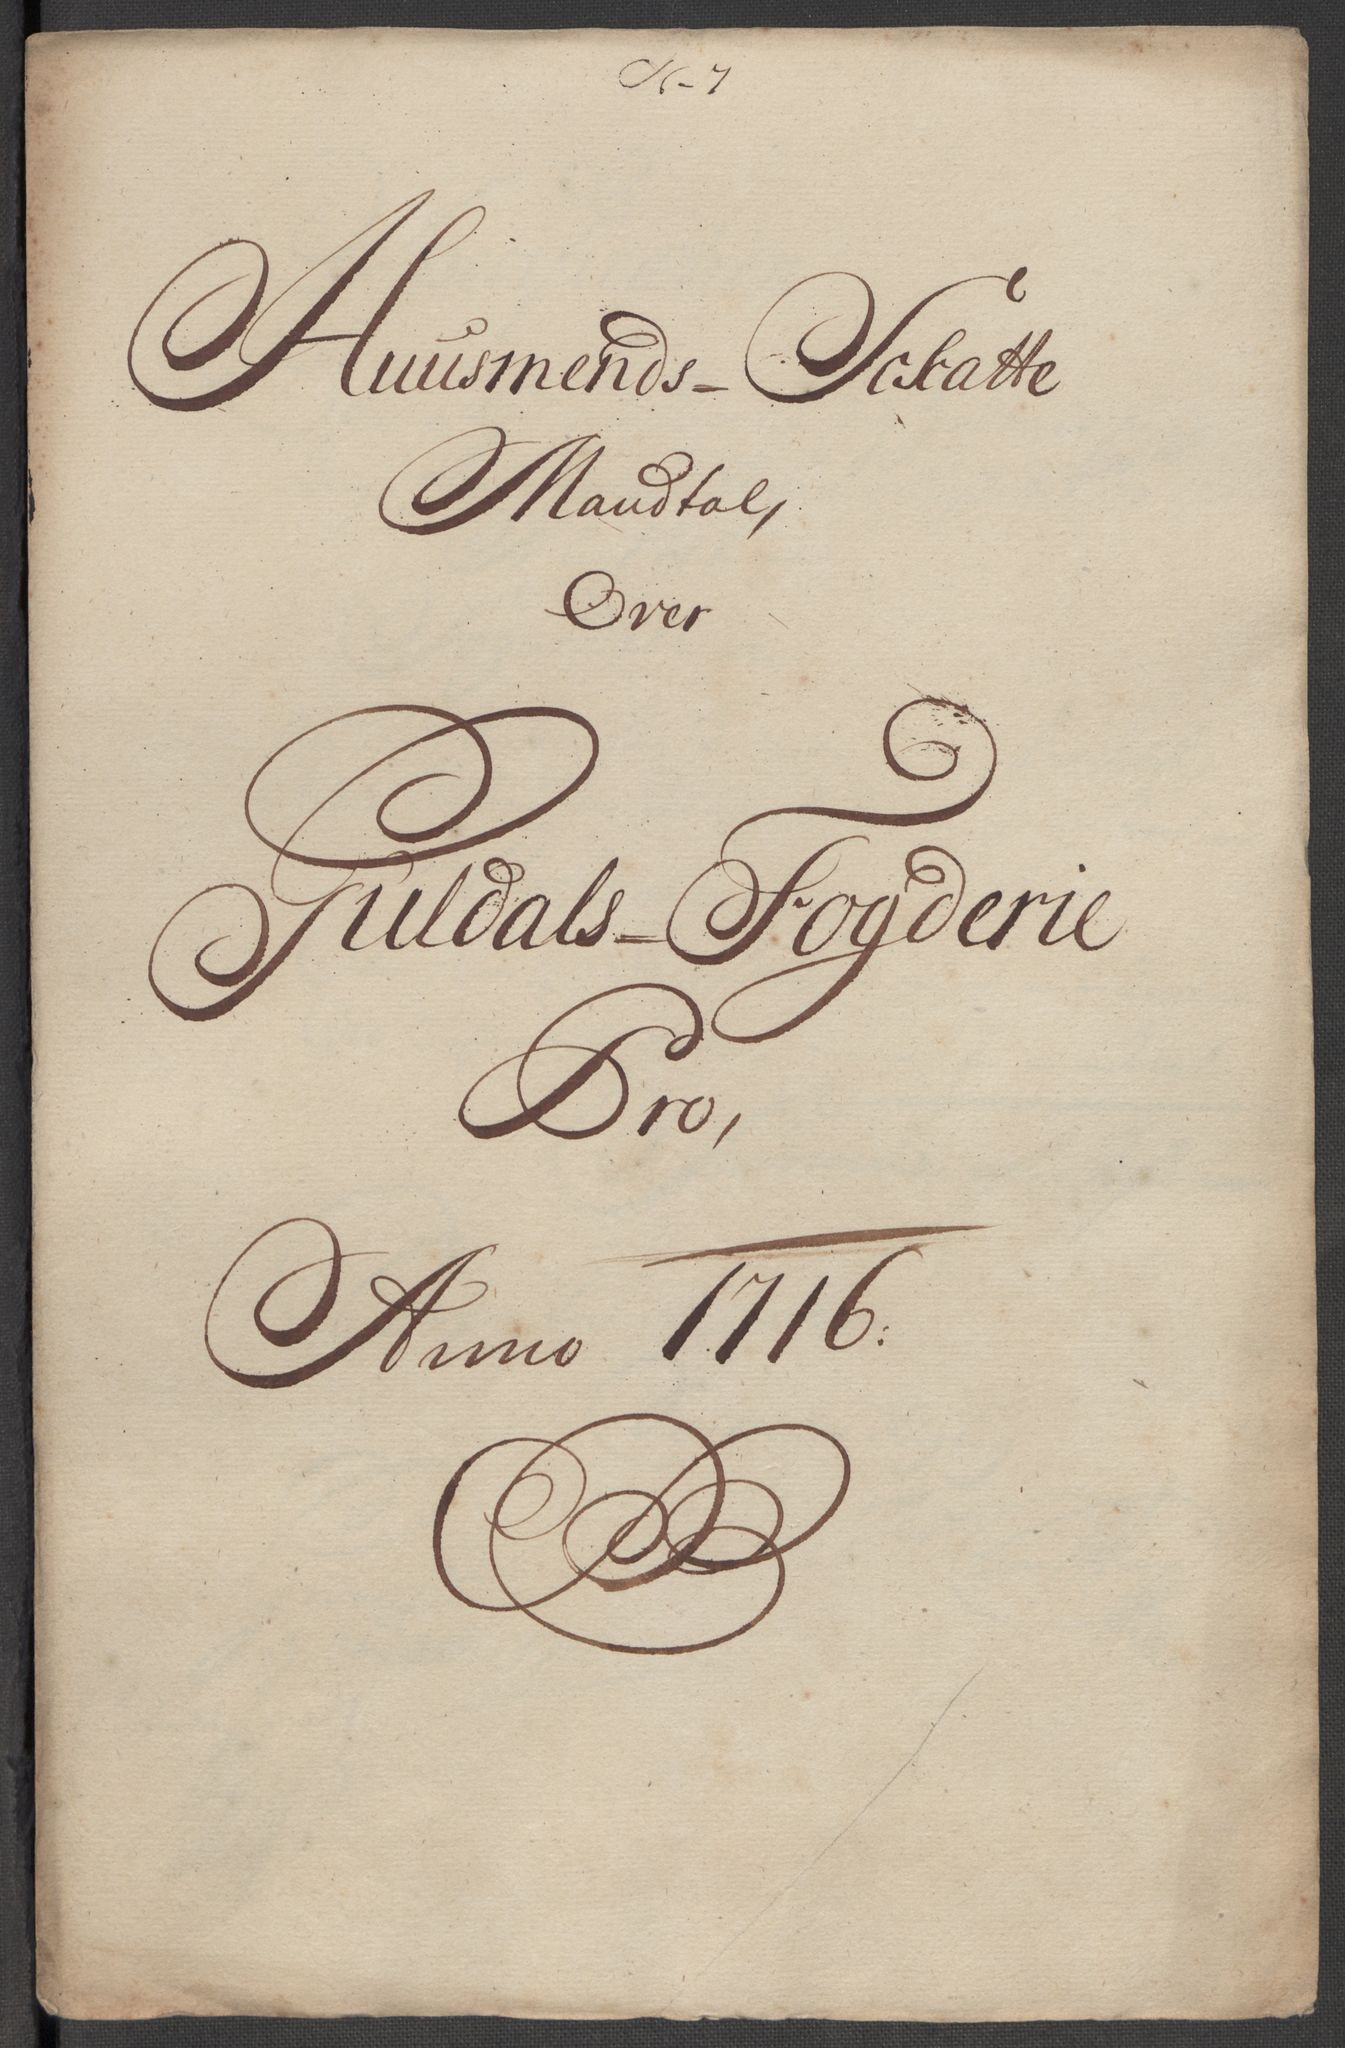 N-7
Huusmends-Schatte
Mandtal,
Over
Guldals-Fogderie
Pro,
Anno 1716: